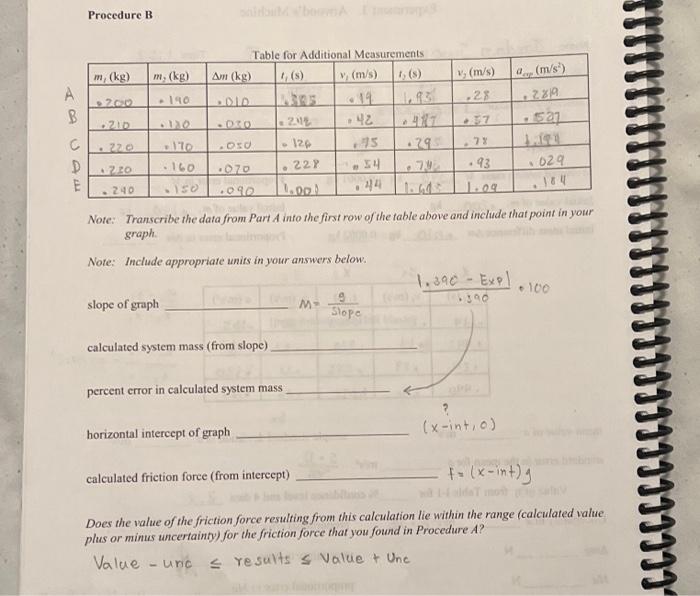 Procedure B
Table for Additional Measurements
m₁ (kg) m₂ (kg) Δm (kg) t₁ (s) v₁ (m/s) t₂ (s) v₂ (m/s) a_exp (m/s²)
A .200 .190 .010 .385 .19 1.93 .28 .289
B .210 .180 .030 .248 .42 .487 .57 .527
C .220 .170 .050 .126 .75 .29 .78
D .230 .160 .070 .228 .54 .93 .029
E .240 .150 .090 1.001 .44 1.09 .184
Note: Transcribe the data from Part A into the first row of the table above and include that point in your
graph.
Note: Include appropriate units in your answers below.
|.390 - Exp| / .390 • 100
slope of graph M = g / Slope
calculated system mass (from slope)
percent error in calculated system mass
?
horizontal intercept of graph (x-int, 0)
calculated friction force (from intercept) f = (x-int)g
Does the value of the friction force resulting from this calculation lie within the range (calculated value
plus or minus uncertainty) for the friction force that you found in Procedure A?
Value - unc ≤ results ≤ Value + Unc